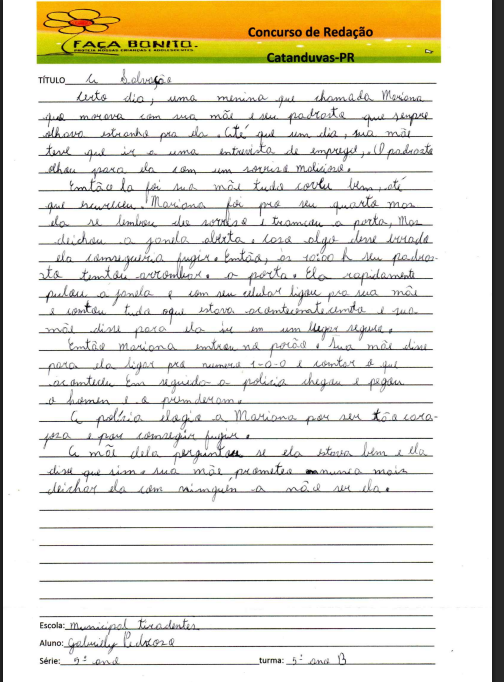 FAÇA BONITO.
PROTEJA NOSSAS CRIANÇAS E ADOLESCENTES.
Concurso de Redação
Catanduvas-PR
TÍTULO A Salvação
Certo dia, uma menina que chamada Mariana
que morava com sua mãe e seu padrasto que sempre
olhava estranho pra ela. Até que um dia, sua mãe
teve que ir a uma entrevista de emprego, O padrasto
olhou para ela com um sorriso malicioso.
Emtão la foi sua mãe tudo correu bem, até
que escureceu. Mariana foi pro seu quarto mas
ela se lembou do sorriso e trancou a porta, Mas
deichou a janela aberta, caso algo desse errado
ela comseguiria fugir. Emtão, as 10:00 h seu padras-
to temtou arrombar a porta. Ela rapidamente
pulou a janela e com seu celular ligou pra sua mãe
e comtou tudo oque estava acomtecendo e sua
mãe disse para ela ir em um lugar seguro.
Emtão Mariona emtrou no porão. Sua mãe disse
para ela ligar pro numero 1-0-0 e comtar o que
acomteceu Em seguida a policia chegou e pegou
o homem e o premderam.
A polícia elogia a Mariana por ser tão cora-
joza e por comseguir fugir.
A mãe dela perguntou se ela estava bem e ela
disse que sim e sua mãe, prometeo nunca mais
deichar ela com nimguén a não ser ela.
Escola: municipal tiradentes
Aluno: Gabrielly Pedroso
Série: 5º ano turma: 5º ano B